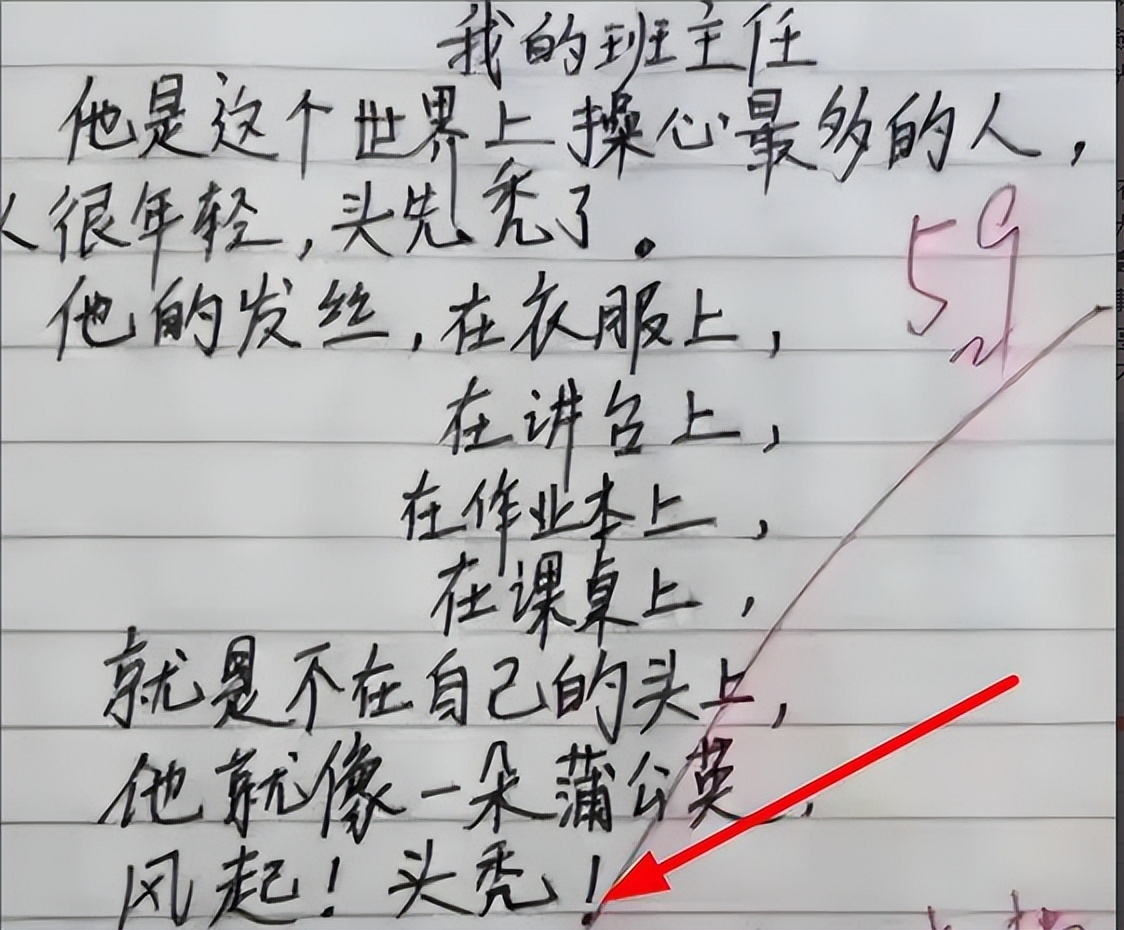 我的班主任
他是这个世界上操心最多的人，
人很年轻，头先秃了。
他的发丝，在衣服上，
59
在讲台上，
在作业本上，
在课桌上，
就是不在自己的头上，
他就像一朵蒲公英，
风起！头秃！